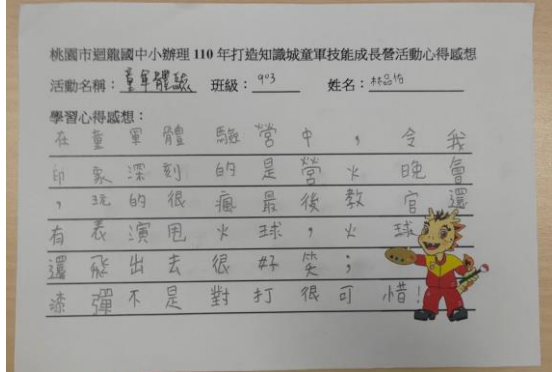 桃園市迴龍國中小辦理 110 年打造知識城童軍技能成長營活動心得感想
活動名稱：童軍體驗 班級：903 姓名：林
學習心得感想：
在童軍體驗營中，令我
印象深刻的是營火晚會
，玩的很瘋最後教官還
有表演甩火球，火球
還飛出去很好笑；
漆彈不是對打很可惜！